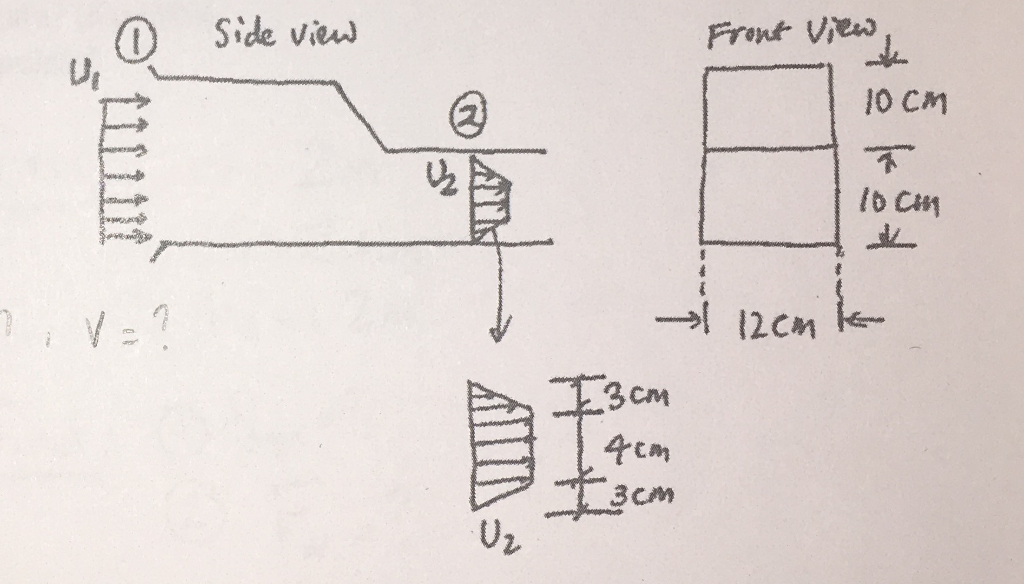 ① Side view
U₁
②
U₂
Front View
10 cm
10 cm
12 cm
, V = ?
3 cm
4 cm
3 cm
U₂